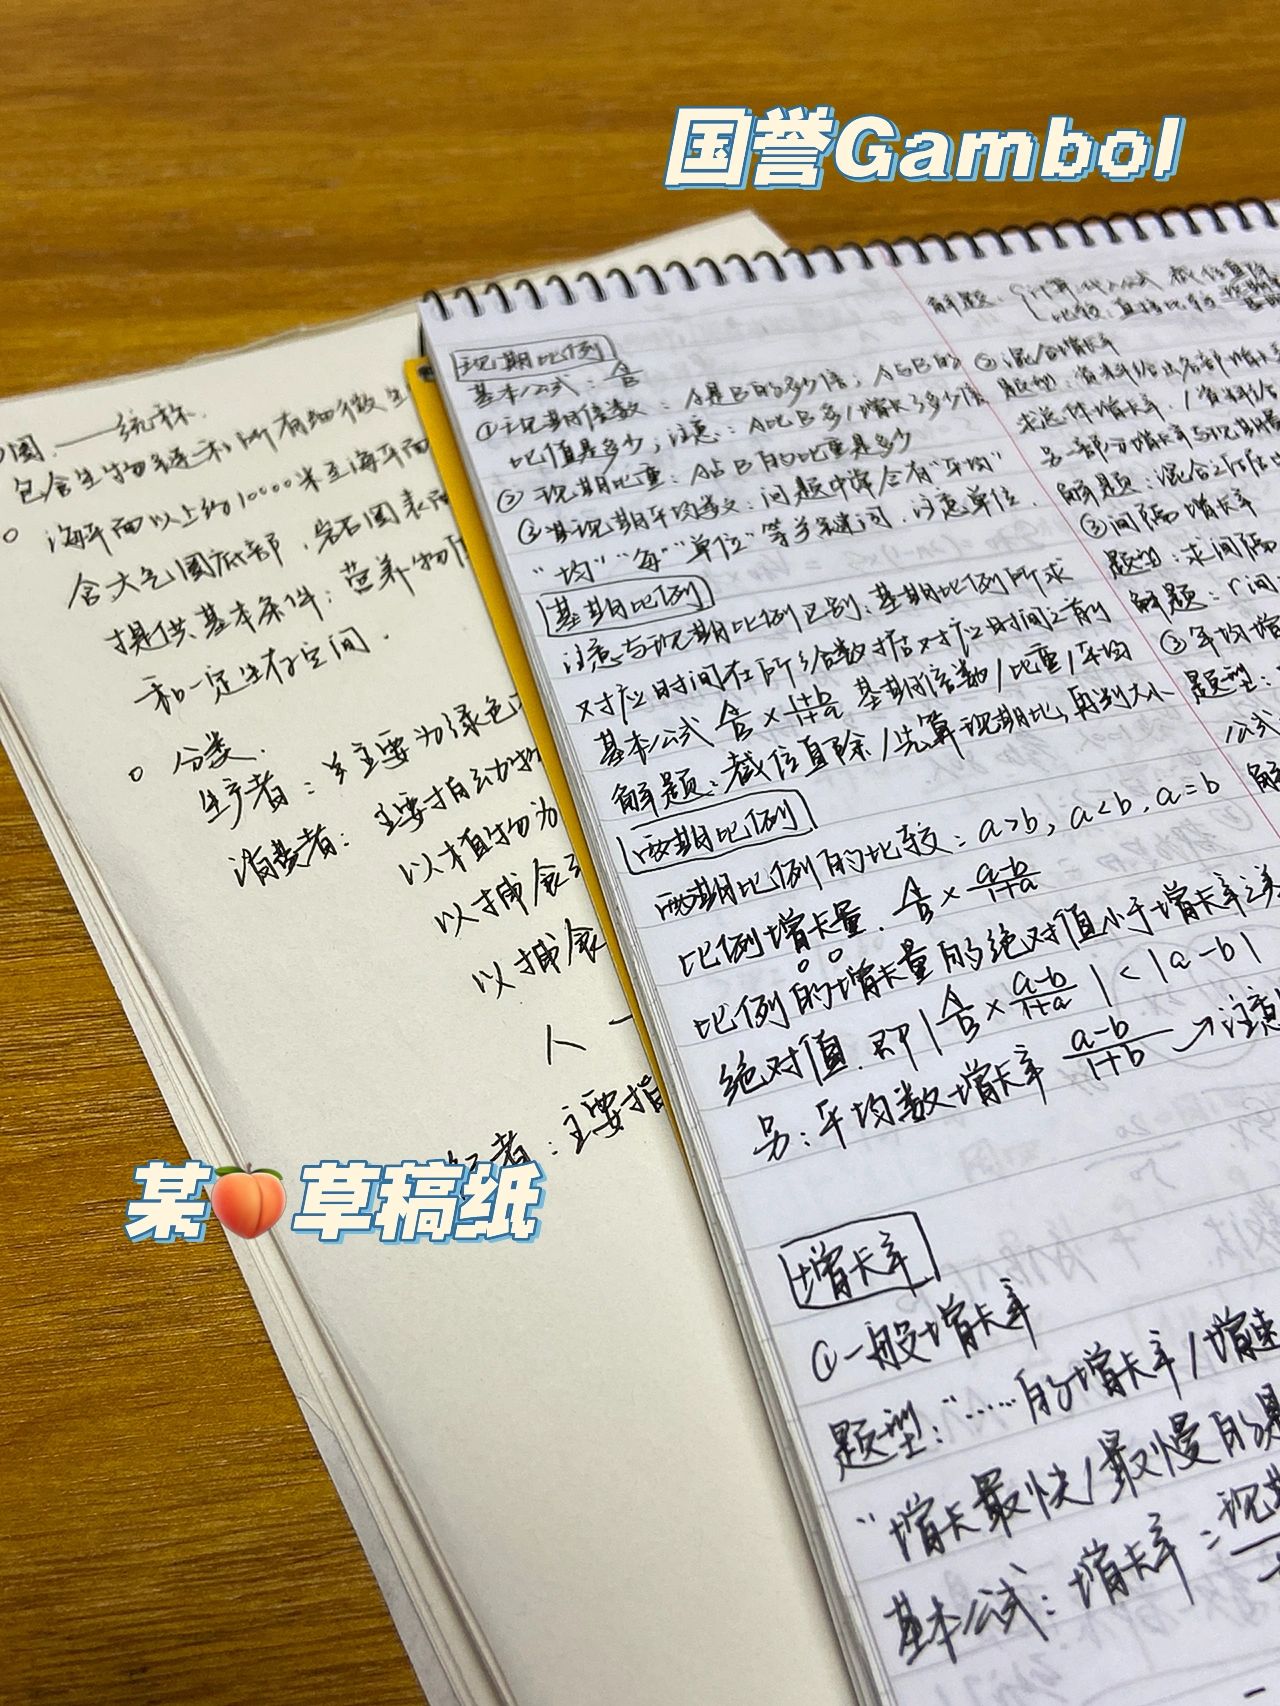 国誉Gambol
某🍑草稿纸
圈.——统称.
包含生物系统和所有细微生
海平面以上约10000米至海平面
含大气圈底部,岩石圈表面
提供基本条件:营养物
和一定生存空间.
分类.
生产者:主要为绿色
消费者:主要指动物
以植物为
以捕食
以捕食
人一
者:主要指
现期比例
基本公式:A/B
①现期倍数:A是B的多少倍;A占B的
比值是多少;注意:A比B多/增长了多少倍
②现期比重:A占B的比重是多少
③现期平均数:问题中常含有"平均"
"均""每""单位"等关键词.注意单位.
基期比例
注意与现期比例区别:基期比例所求
对应时间在所给数据对应时间之前
基本公式 A/B×(1+b)/(1+a) 基期倍数/比重/平均
解题:截位直除/先算现期比,再判大小
两期比例
两期比例的比较:a>b, a<b, a=b
比例增长量.A/B×(a-b)/(1+a)
比例的增长量的绝对值小于增长率之差
绝对值.即|A/B×(a-b)/(1+a)|<|a-b|
另:平均数增长率 (a-b)/(1+b) →注意
增长率
①一般增长率
题型:"……的增长率/增速
"增长最快/最慢的是
基本公式:增长率=现期
解题:计算代入公式 截位直除
比较:直接比较
②混合增长率
题型:资料给出各部增长率
求总体增长率./资料给
另一部分增长率与现期量
解题:混合后居中
③间隔增长率
题型:求间隔
解题:r间
③年均增
题型:
公式
解